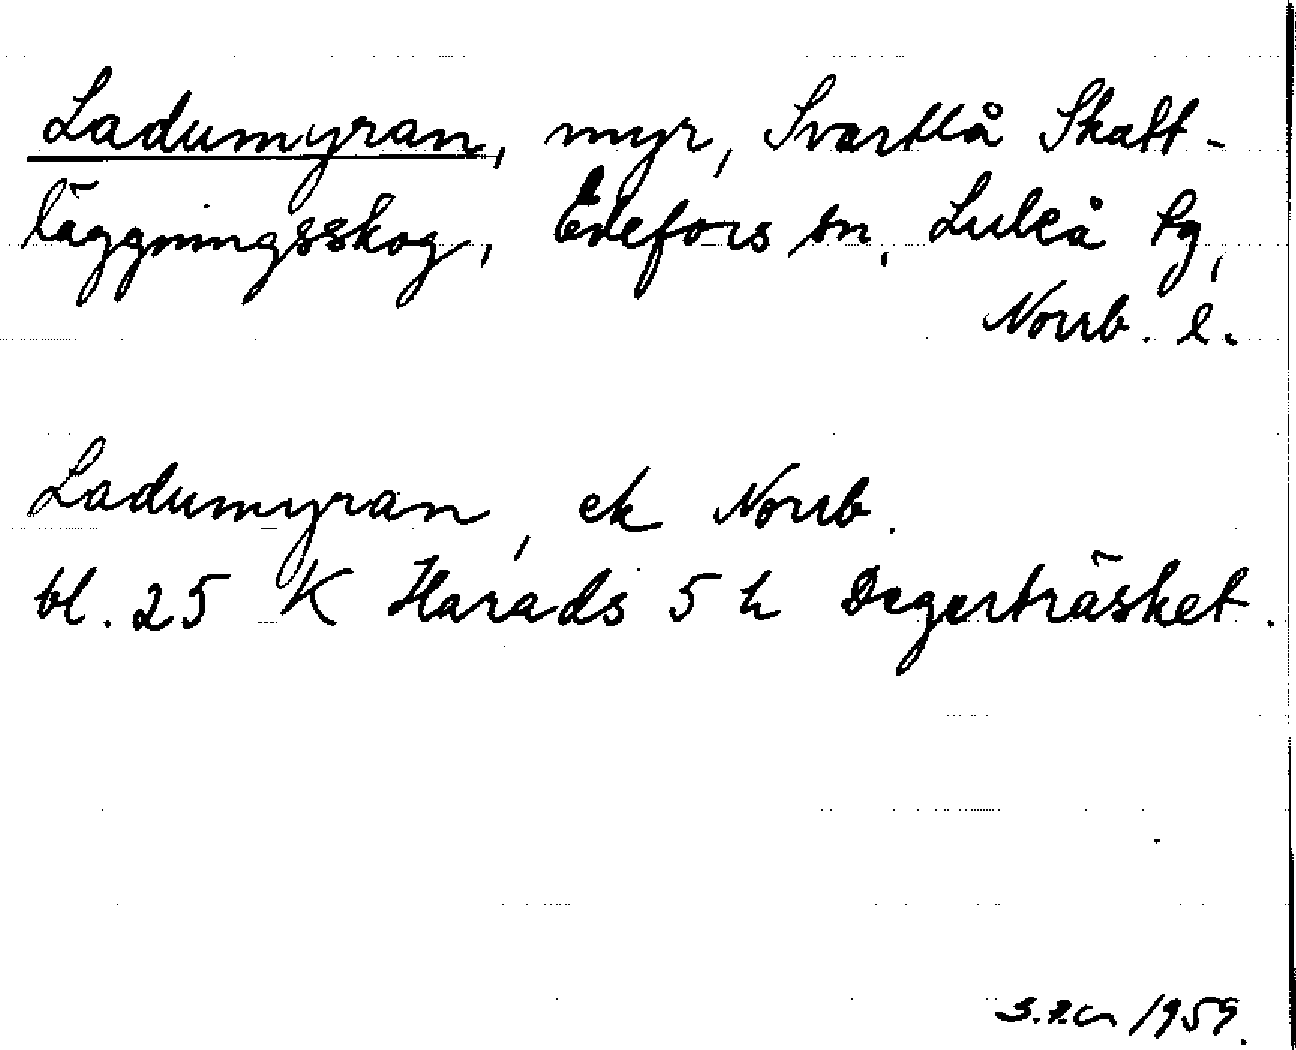 Ladumyran, myr, Svartlå Skatt-
läggningsskog, Edefors sn, Luleå lg,
Norrb. l.
Ladumyran, ek Norrb.
bl. 25 K Harads 5 h Degerträsket.
1959.